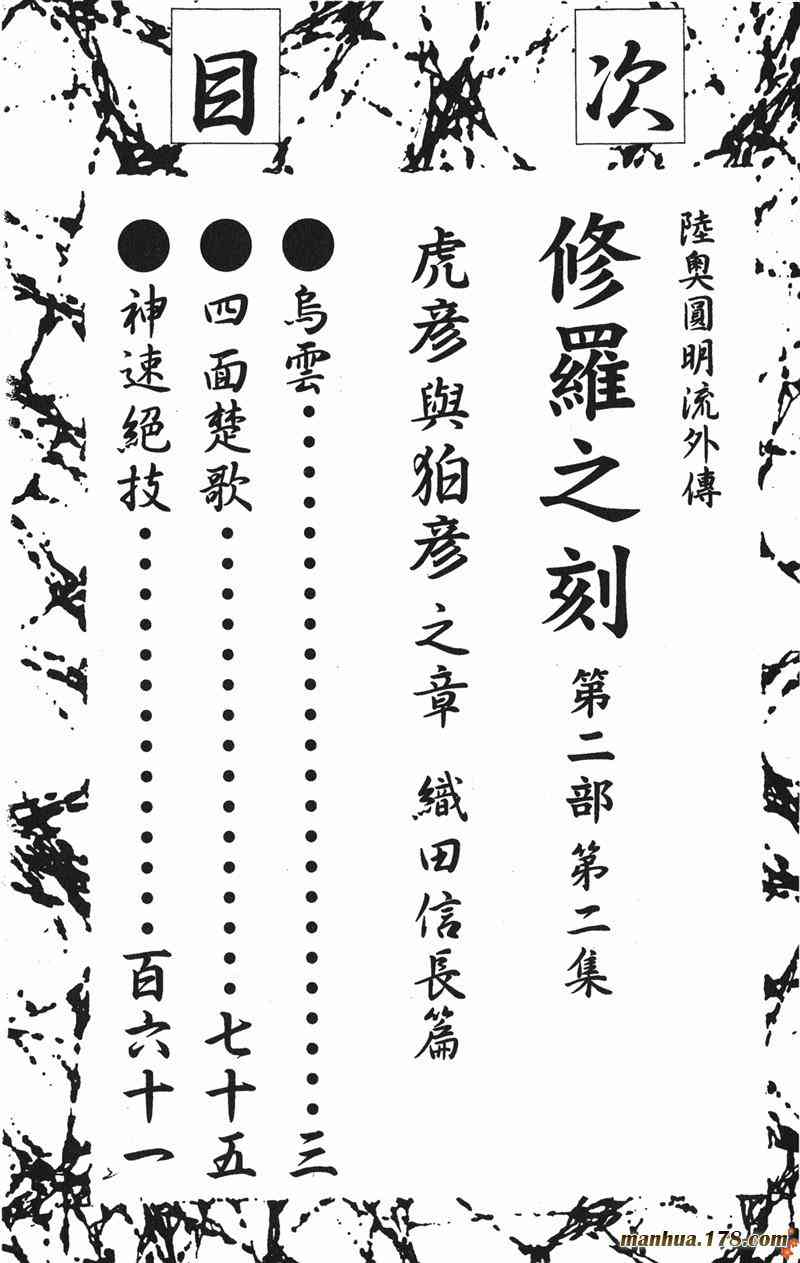 次目
陸奧圓明流外傳
修羅之刻 第二部第二集
虎彦與狛彦之章 織田信長篇
●烏雲⋯⋯⋯⋯⋯⋯⋯⋯三
●四面楚歌⋯⋯⋯⋯⋯⋯七十五
●神速絕技⋯⋯⋯⋯⋯⋯百六十一
manhua.178.com